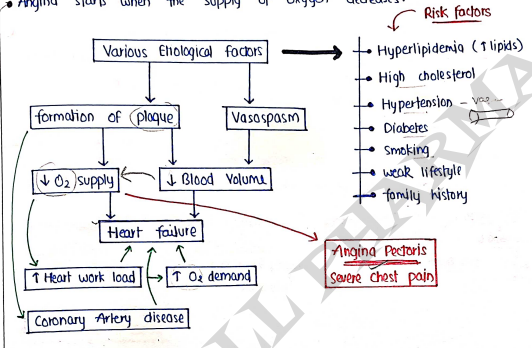 • Angina starts when the supply of oxygen decreases.
Risk Factors
Various Etiological factors
Hyperlipidemia (↑ lipids)
High cholesterol
formation of plaque
Vasospasm
Hypertension -
Diabetes
Smoking
↓ O2 supply
↓ Blood Volume
weak lifestyle
family history
Heart failure
Angina Pectoris
Severe chest pain
↑ Heart work load
↑ O2 demand
Coronary Artery disease
PHARMA